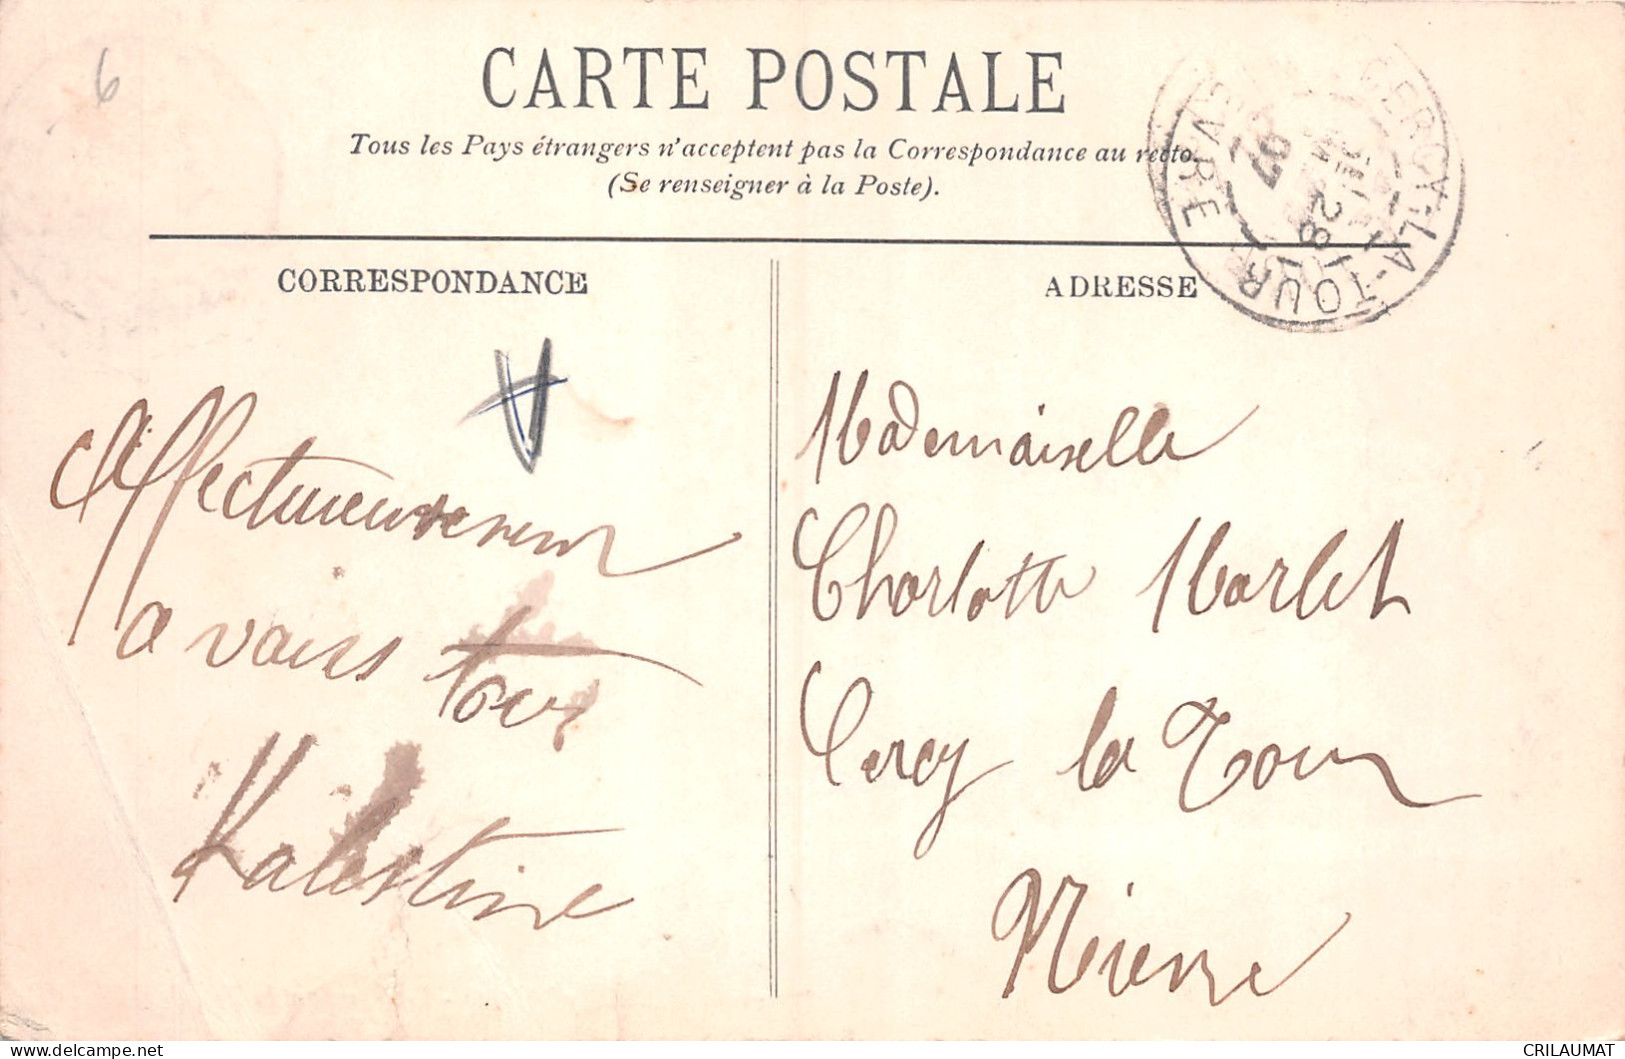 6
CARTE POSTALE
Tous les Pays étrangers n'acceptent pas la Correspondance au recto.
(Se renseigner à la Poste).
CERCY-LA-TOUR
NIEVRE
28
07
CORRESPONDANCE
ADRESSE
Affectueusement
a vous tous
Mademoiselle
Charlotte Marlet
Cercy la Tour
Nièvre
CRILAUMAT